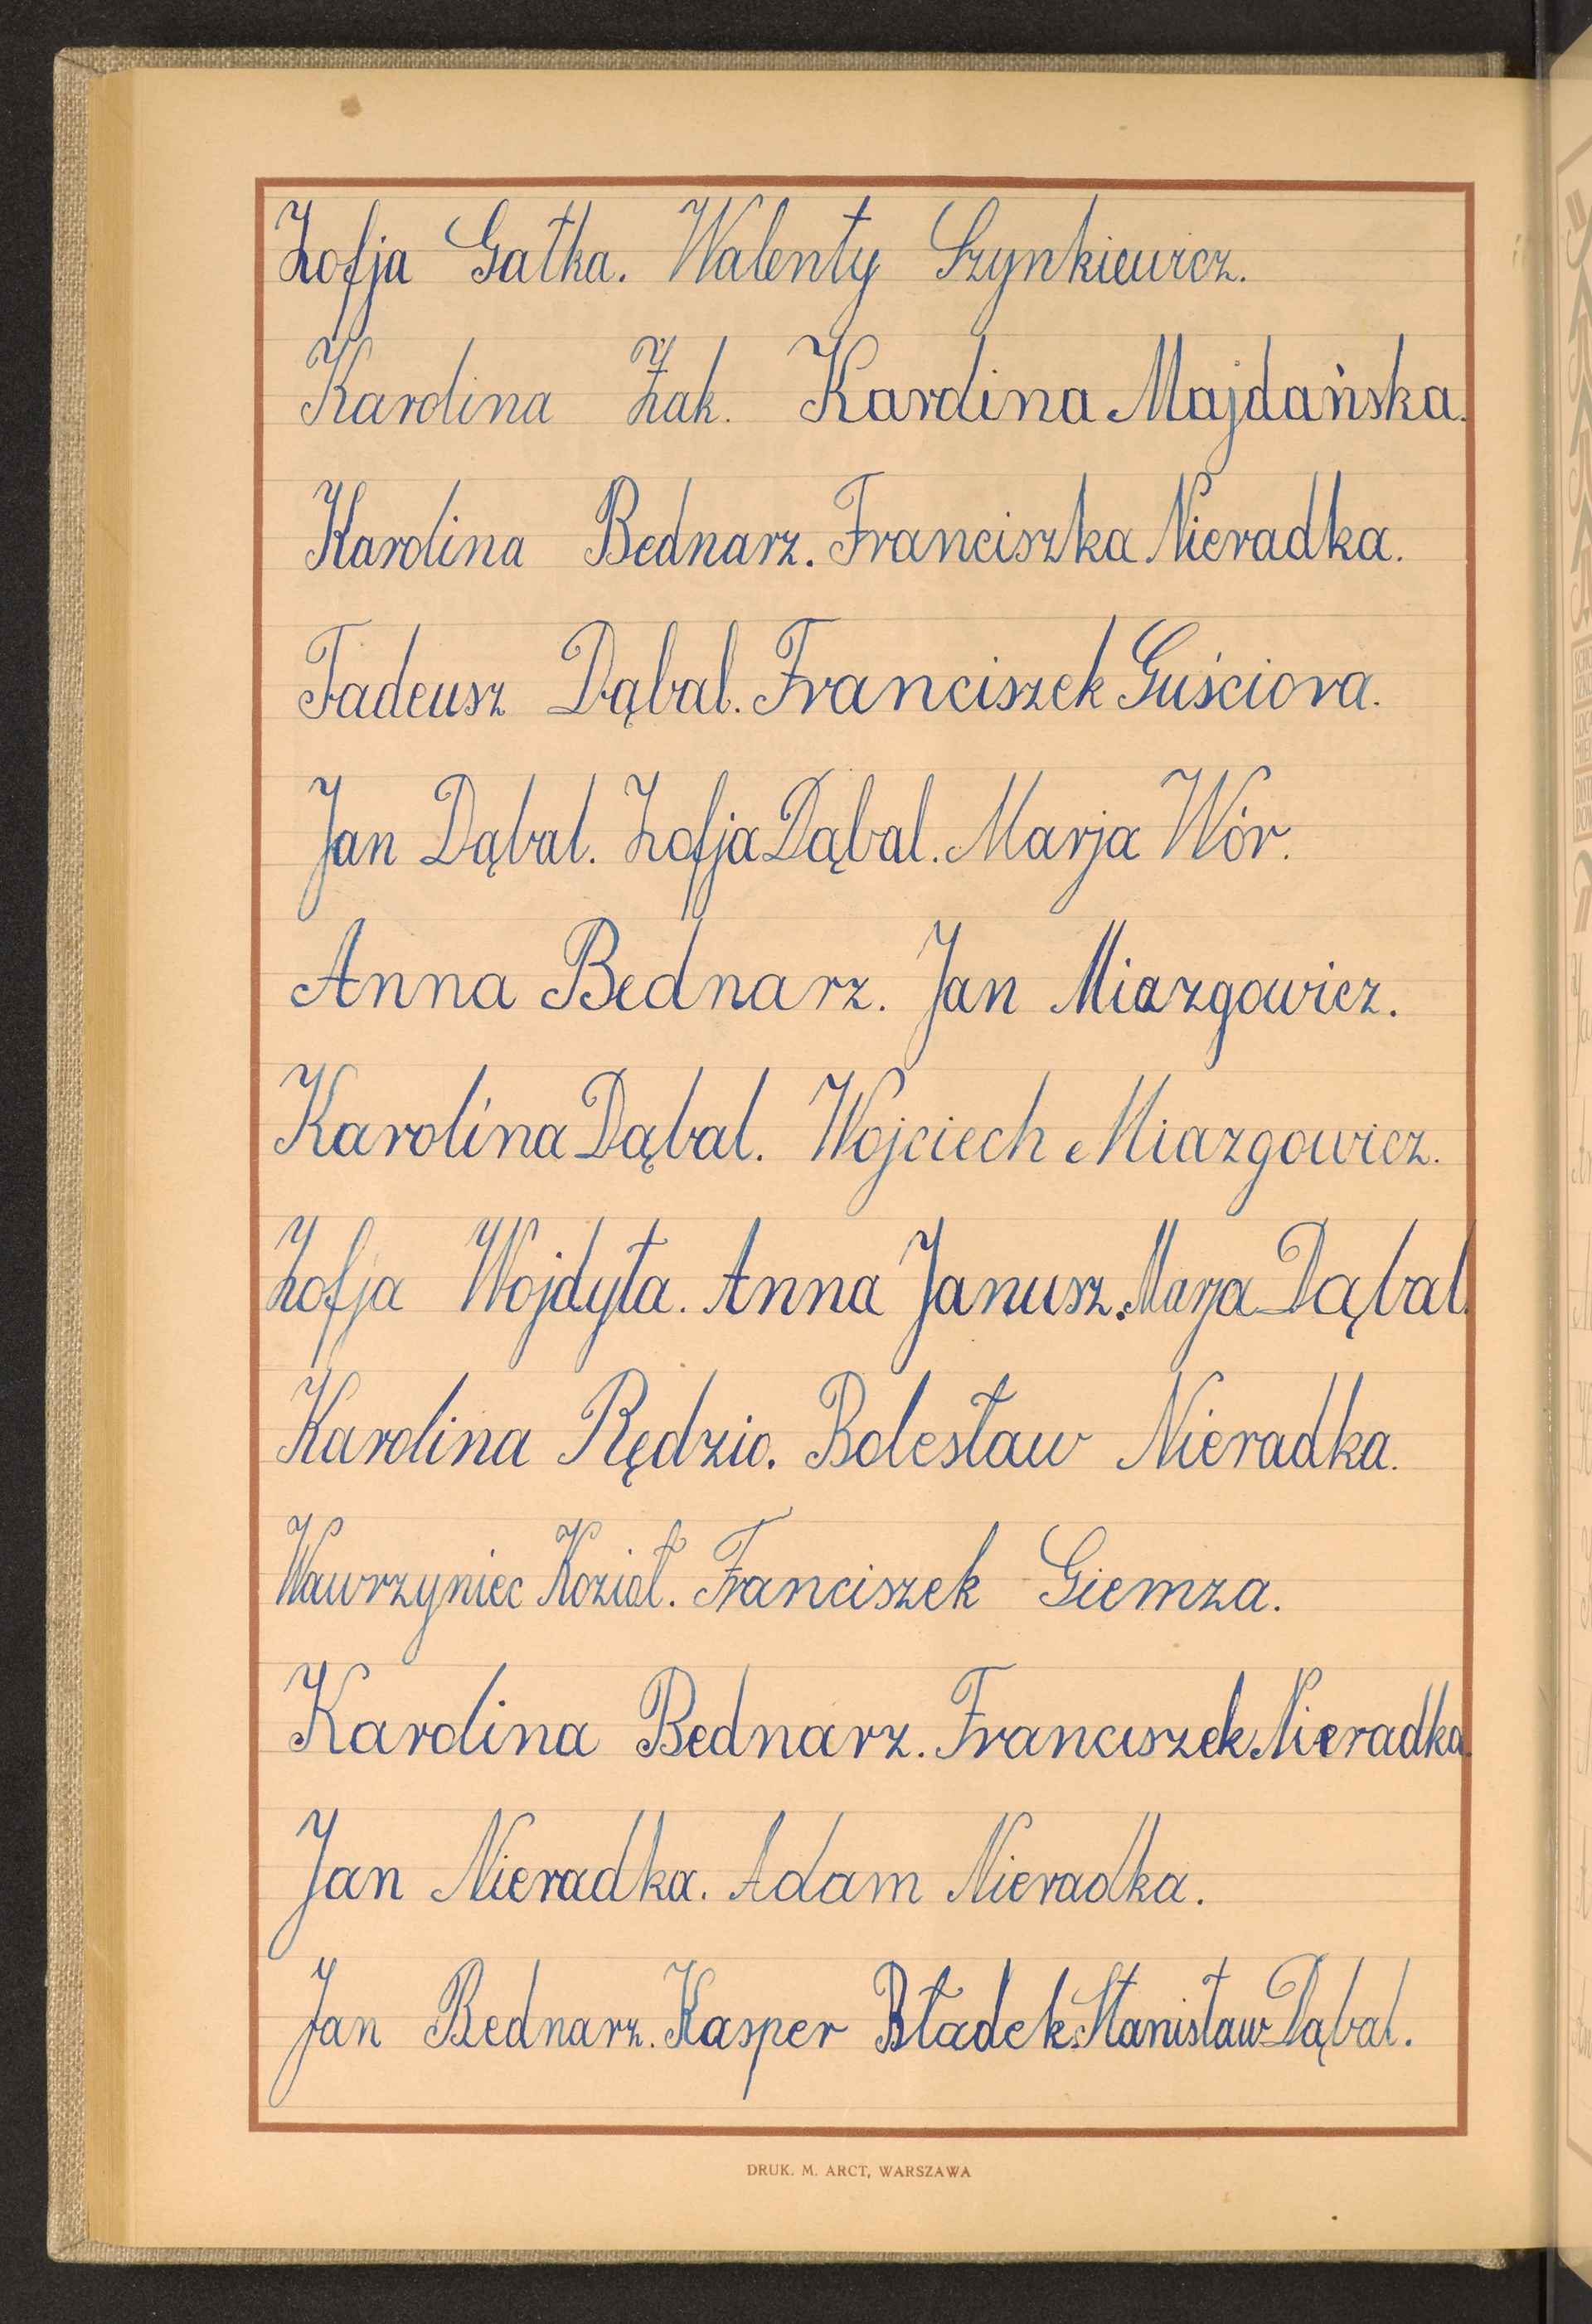 Zofja Gałka. Walenty Szynkiewicz.
Karolina Żak. Karolina Majdańska.
Karolina Bednarz. Franciszka Nieradka.
Tadeusz Dąbal. Franciszek Guściora.
Jan Dąbal. Zofja Dąbal. Marja Wór.
Anna Bednarz. Jan Miazgowicz.
Karolina Dąbal. Wojciech Miazgowicz.
Zofja Wojdyła. Anna Janusz. Marja Dąbal.
Karolina Rędzio. Bolesław Nieradka.
Wawrzyniec Kozioł. Franciszek Giemza.
Karolina Bednarz. Franciszek Nieradka.
Jan Nieradka. Adam Nieradka.
Jan Bednarz. Kasper Bładek. Stanisław Dąbal.
DRUK. M. ARCT, WARSZAWA